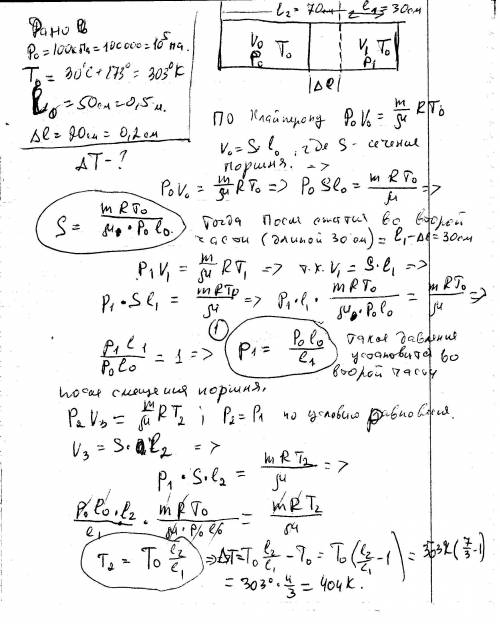 l₂ = 70см l₁ = 30см
Дано
P₀ = 100кПа = 100000 = 10⁵ па.
T₀ = 30°C + 273° = 303°K
l₀ = 50см = 0,5м.
Δl = 20см = 0,2см
ΔT - ?
V₀ T₀ V₁ T₀
P₀ P₁
|Δl|
По Клайперону P₀V₀ = m/μ RT₀
V₀ = S·l₀, где S - сечение
поршня. =>
P₀V₀ = m/μ RT₀ => P₀Sl₀ = mRT₀/μ =>
S = mRT₀/μ·P₀l₀ Тогда после сжатия во второй
части (длиной 30см) = l₁-Δl = 30см
P₁V₁ = m/μ RT₁ => т.к. V₁ = S·l₁ =>
P₁·Sl₁ = mRT₀/μ => P₁·l₁· mRT₀/μ·P₀l₀ = mRT₀/μ =>
P₁l₁/P₀l₀ = 1 => ① P₁ = P₀l₀/l₁ такое давление
установится во
второй части
после смещения поршня.
P₂V₃ = m/μ RT₂ ; P₂ = P₁ по условию равновесия.
V₃ = S·l₂ =>
P₁·S·l₂ = mRT₂/μ =>
P₀l₀·l₂/l₁ · mRT₀/μ·P₀l₀ = mRT₂/μ
T₂ = T₀ l₂/l₁ => ΔT = T₀ l₂/l₁ - T₀ = T₀(l₂/l₁ - 1) = 303°(7/3 - 1)
= 303°·4/3 = 404К.